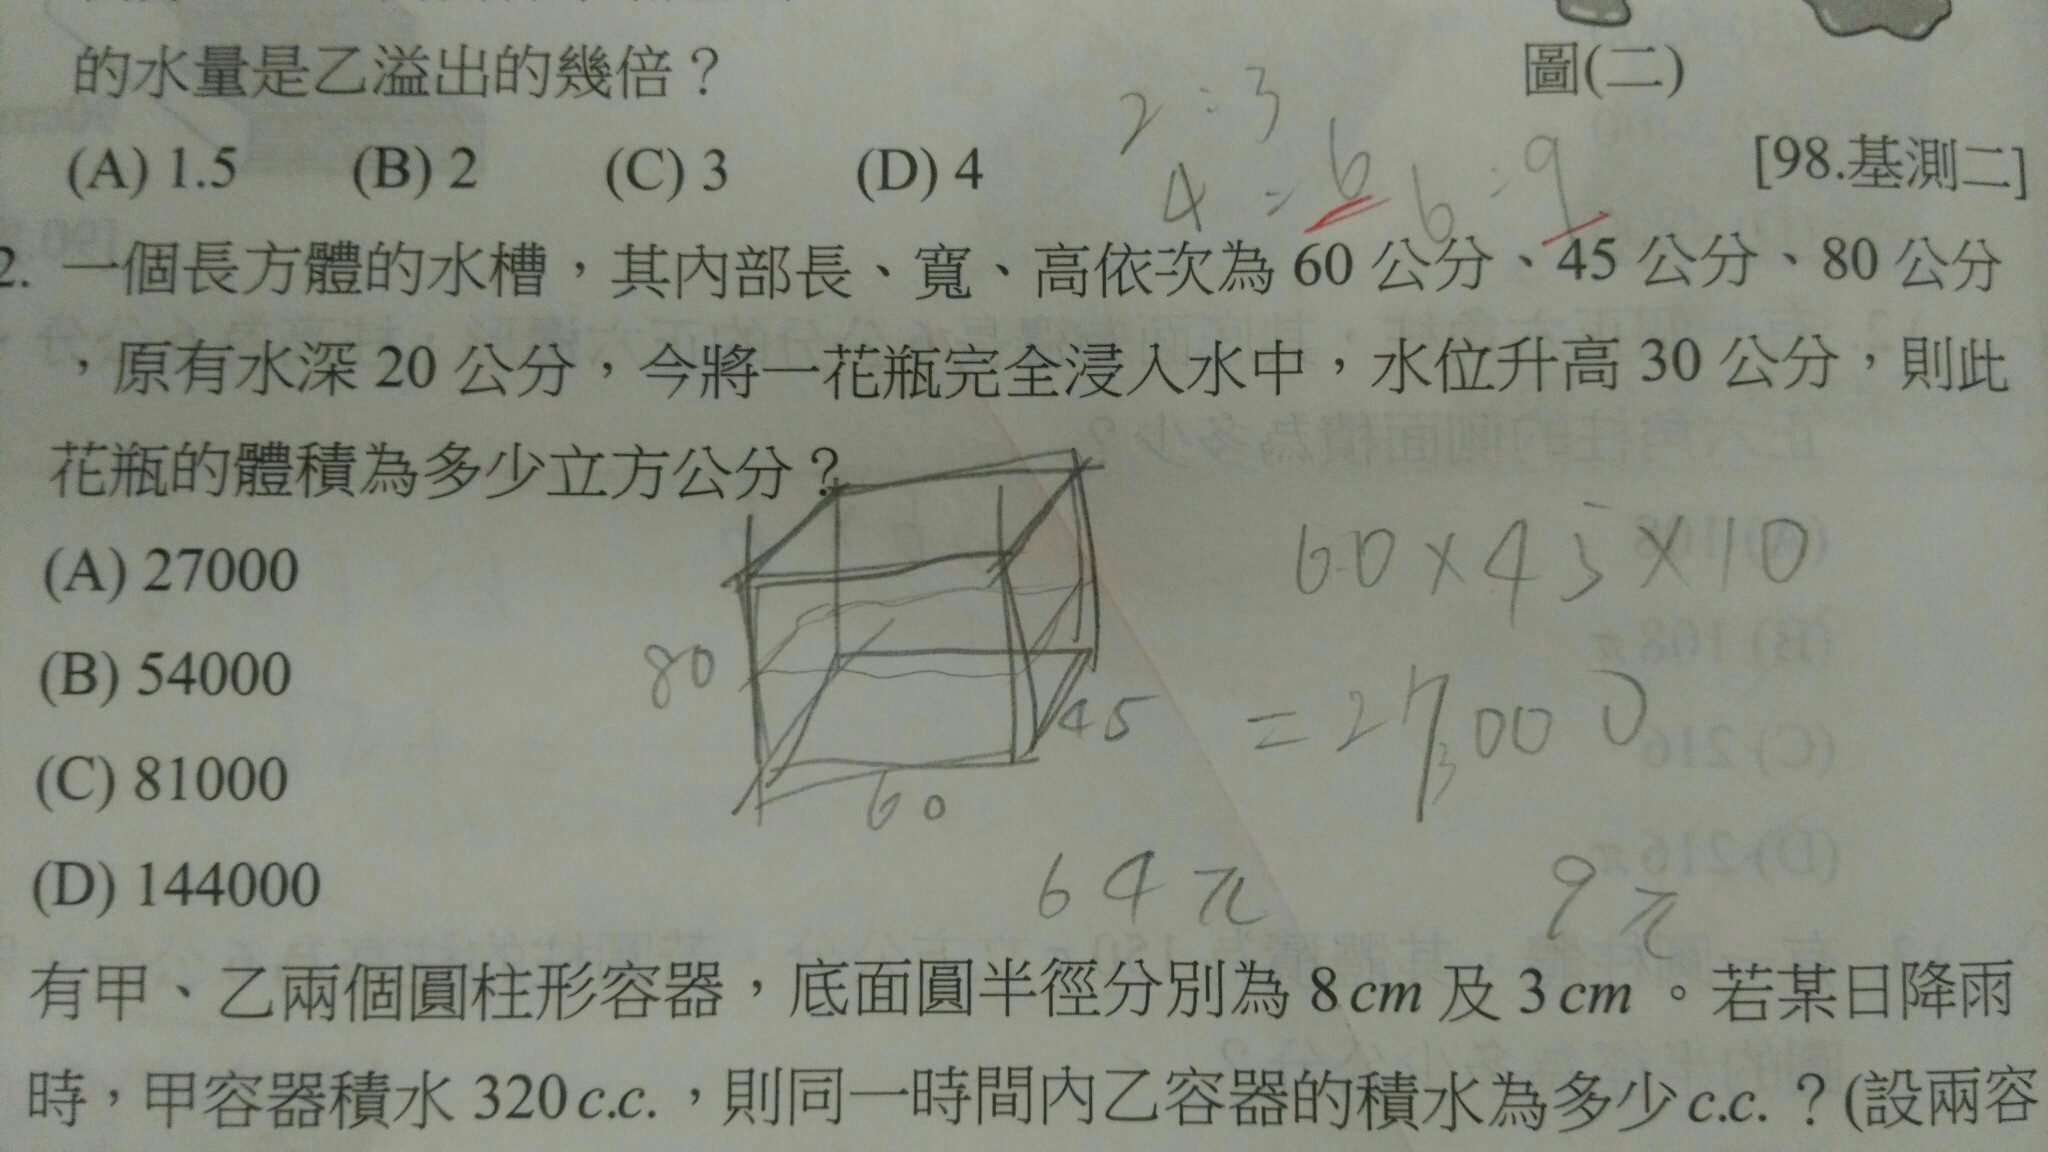 的水量是乙溢出的幾倍？
圖(二)
(A) 1.5 (B) 2 (C) 3 (D) 4
[98.基測二]
2:3
4=6 6:9
2. 一個長方體的水槽，其內部長、寬、高依次為 60 公分、45 公分、80 公分
，原有水深 20 公分，今將一花瓶完全浸入水中，水位升高 30 公分，則此
花瓶的體積為多少立方公分？
(A) 27000
(B) 54000
(C) 81000
(D) 144000
60×45×10
=27000
80
45
60
64π 9π
有甲、乙兩個圓柱形容器，底面圓半徑分別為 8cm 及 3cm。若某日降雨
時，甲容器積水 320c.c.，則同一時間內乙容器的積水為多少c.c.？(設兩容